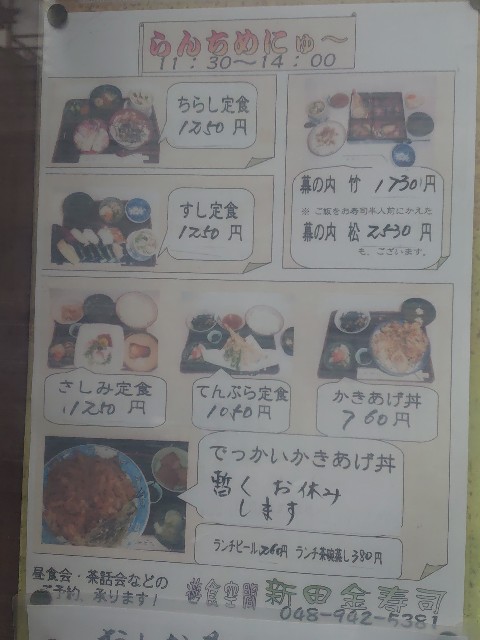 らんちめにゅ～
11：30～14：00
ちらし定食
1250円
すし定食
1250円
幕の内 竹 1730円
※ ご飯をお寿司半人前にかえた
幕の内 松 2530円
も、ございます。
さしみ定食
1250円
てんぷら定食
1050円
かきあげ丼
760円
でっかいかきあげ丼
暫くお休み
します
ランチビール 260円 ランチ茶碗蒸し 380円
昼食会・茶話会などの
ご予約、承ります！
遊食空間 新田金寿司
048-942-5381